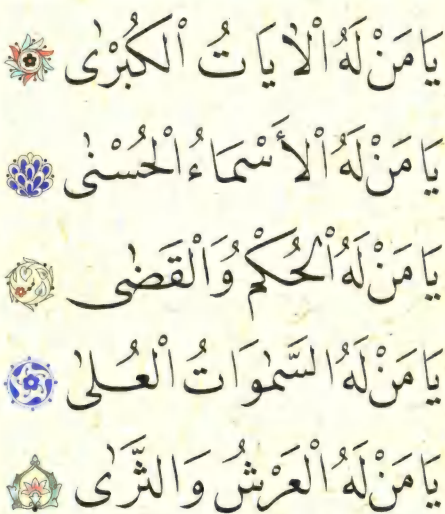 يَا مَنْ لَهُ الْاٰيَاتُ الْكُبْرٰى
يَا مَنْ لَهُ الْأَسْمَاءُ الْحُسْنٰى
يَا مَنْ لَهُ الْحُكْمُ وَالْقَضٰى
يَا مَنْ لَهُ السَّمٰوَاتُ الْعُلٰى
يَا مَنْ لَهُ الْعَرْشُ وَالثَّرٰى